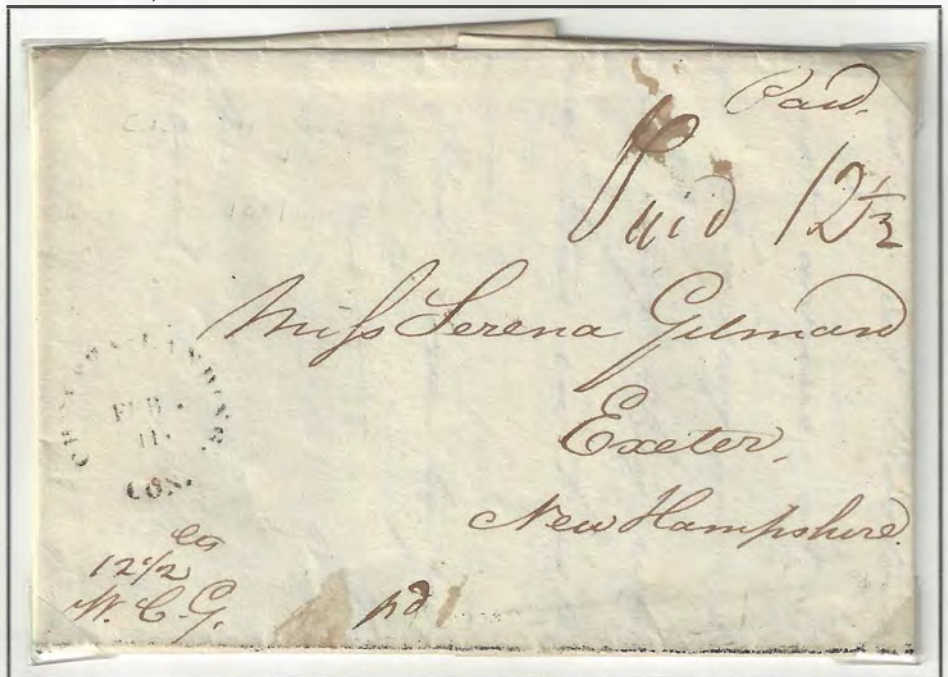 Paid.
Paid 12½
Miss Serena Gilman
Exeter,
New Hampshire.
CHELSEA-LANDING.
FEB.
11.
CON.
cts
12½
W. C. G.
pd